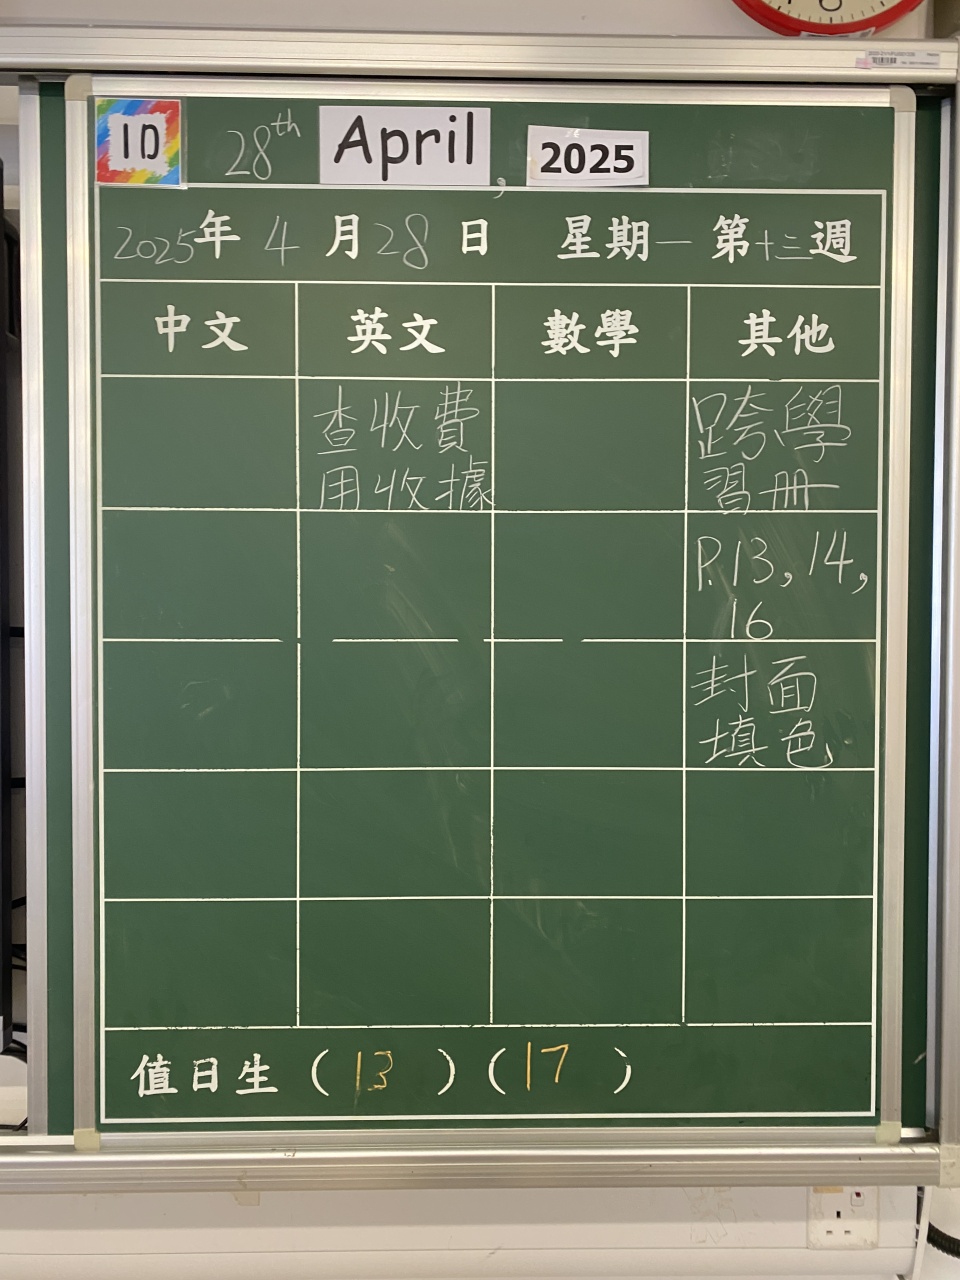 1D 28th April, 2025
2025年 4月28日 星期一 第十三週
中文 英文 數學 其他
查收費
用收據
跨學
習冊
P.13, 14,
16
封面
填色
值日生 (13) (17)